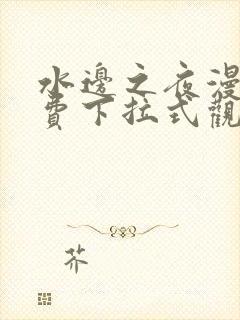 水邊之夜漫
費下拉式觀
芥